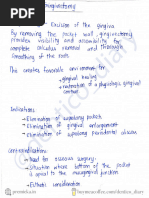 Gingivectomy
Excision of the gingiva
By removing the pocket wall, gingivectomy
provides visibility and accessibility for
complete calculus removal and thorough
smoothing of the roots
This creates favorable environment for
gingival healing
restoration of a physiologic gingival
contour
Indications:
Elimination of suprabony pockets
Elimination of gingival enlargements
Elimination of suprabony periodontal abscess
Contraindication:
Need for osseous surgery
Situation where bottom of the pocket
is apical to the mucogingival junction
Esthetic consideration